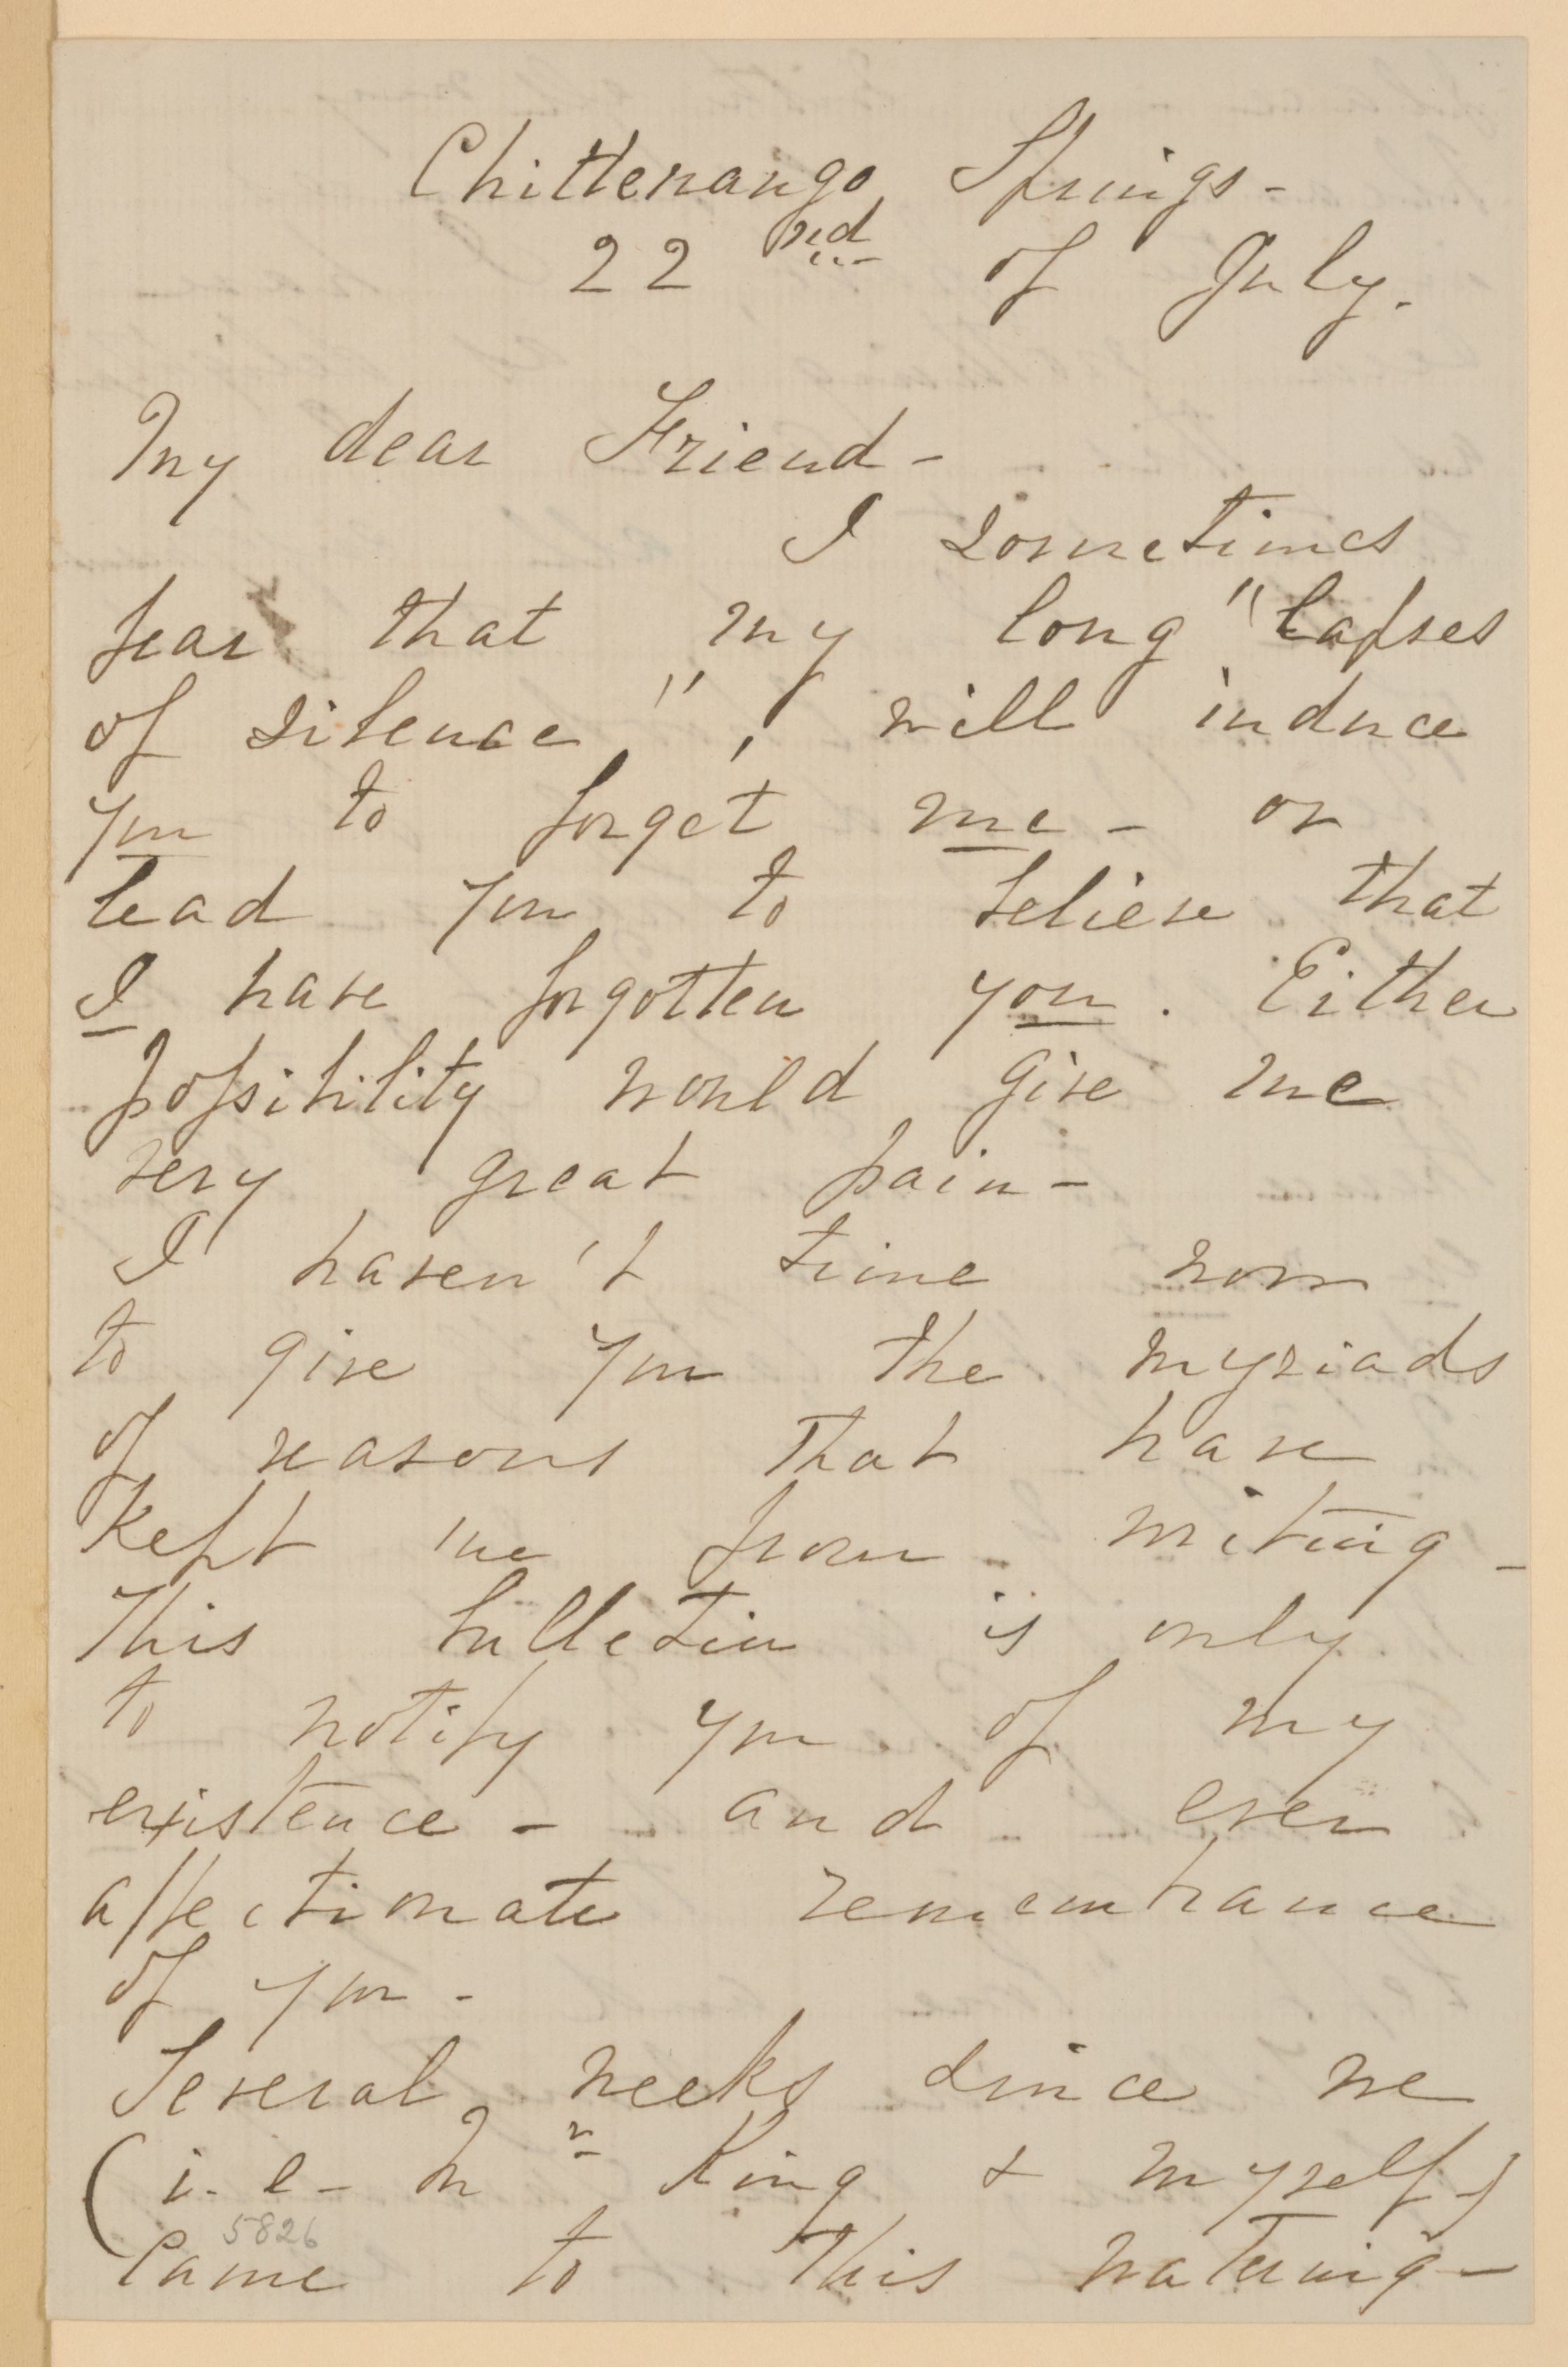 Chittenango Springs -
22nd of July.
My dear Friend -
I sometimes
fear that my long "lapses
of silence", will induce
you to forget me - or
lead you to believe that
I have forgotten you. Either
possibility would give me
very great pain -
I haven't time now
to give you the myriads
of reasons that have
kept me from writing -
This bulletin is only
to notify you of my
existence - and ever
affectionate remembrance
of you -
Several weeks since we
(i. e - Mr King & myself -)
5826
Came to this watering -